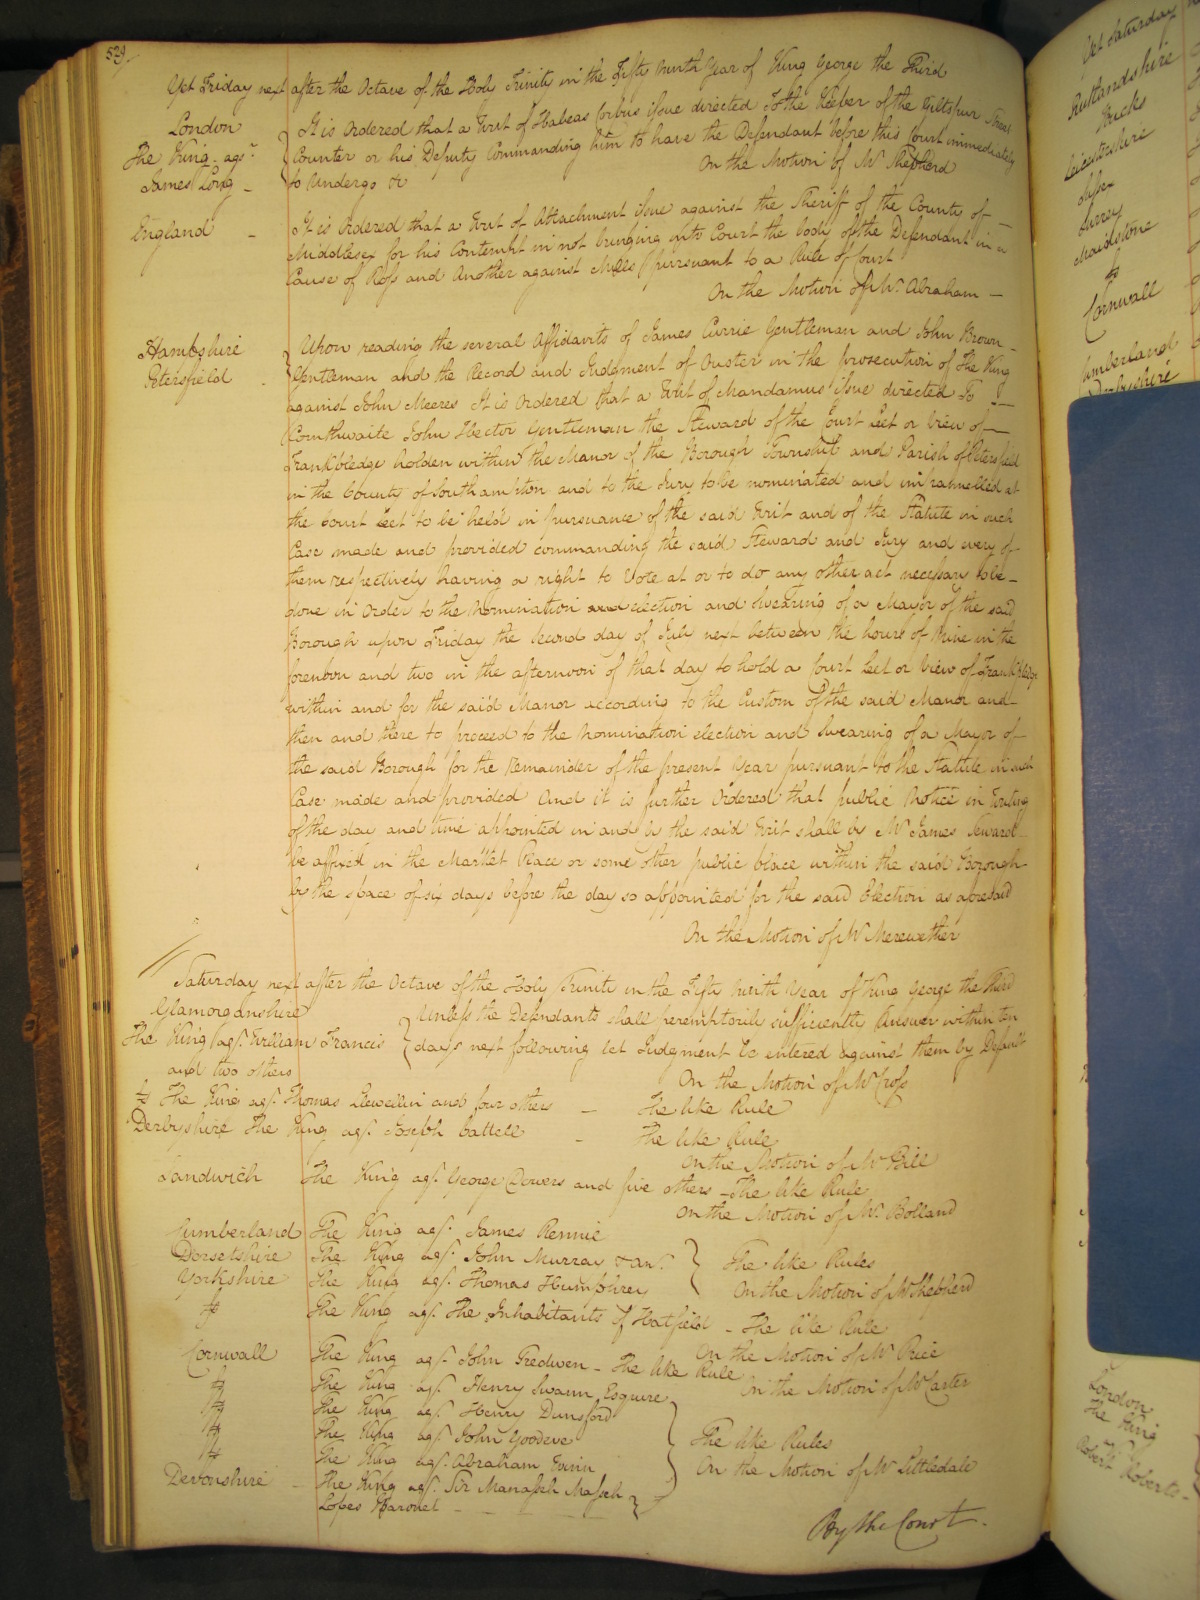 529
Yet Friday next after the Octave of the Holy Trinity in the Fifty Ninth Year of King George the Third
London
The King agst
James Long
It is Ordered that a Writ of Habeas Corpus issue directed To the Keeper of the Giltspur Street
Counter or his Deputy Commanding him to have the Defendant before this Court immediately
to undergo &c
On the Motion of Mr Shepherd
England
It is Ordered that a Writ of Attachment issue against the Sheriff of the County of
Middlesex for his Contempt in not bringing into Court the body of the Defendant in a
Cause of Ross and Another against Mills pursuant to a Rule of Court
On the Motion of Mr Abraham
Hampshire
Petersfield
Upon reading the several Affidavits of James Currie Gentleman and John Brown
Gentleman and the Record and Judgment of Ouster in the prosecution of The King
against John Meeres It is Ordered that a Writ of Mandamus issue directed To
Cornthwaite John Hector Gentleman the Steward of the Court Leet or View of
Frankpledge holden within the Manor of the Borough Township and Parish of Petersfield
in the County of Southampton and to the Jury to be nominated and impannelled at
the Court Leet to be held in pursuance of the said Writ and of the Statute in such
Case made and provided commanding the said Steward and Jury and every of
them respectively having a right to Vote at or to do any other act necessary to be
done in Order to the nomination and election and Swearing of a Mayor of the said
Borough upon Friday the Second day of July next between the hours of Nine in the
forenoon and two in the afternoon of that day to hold a Court Leet or View of Frankpledge
within and for the said Manor according to the Custom of the said Manor and
then and there to proceed to the Nomination election and Swearing of a Mayor of
the said Borough for the Remainder of the present Year pursuant to the Statute in such
Case made and provided And it is further Ordered that public Notice in Writing
of the day and time appointed in and by the said Writ shall by Mr James Seward
be affixed in the Market Place or some other public place within the said Borough
by the space of six days before the day so appointed for the said Election as aforesaid
On the Motion of Mr Merewether
Saturday next after the Octave of the Holy Trinity in the Fifty Ninth Year of King George the Third
Glamorganshire
The King agst William Francis
and two others
Unless the Defendants shall peremptorily sufficiently Answer within ten
days next following let Judgment be entered against them by Default
On the Motion of Mr Cross
The King agst Thomas Llewellin and four others The like Rule
Derbyshire The King agst Joseph Cattell The like Rule
On the Motion of Mr Bill
Sandwich The King agst George Dowers and five others The like Rule
On the Motion of Mr Bolland
Cumberland The King agst James Rennie
Dorsetshire The King agst John Murray & anr
Yorkshire The King agst Thomas Humphrey
The like Rules
On the Motion of Mr Shepherd
The King agst The Inhabitants of Hatfield The like Rule
On the Motion of Mr Price
Cornwall The King agst John Tredwen The like Rule
On the Motion of Mr Carter
The King agst Henry Swann Esquire
The King agst Henry Dunsford
The King agst John Goodeve
The King agst Abraham Winn
Devonshire The King agst Sir Manasseh Masseh
Lopes Baronet
The like Rules
On the Motion of Mr Littledale
By the Court
Yet Saturday
Rutlandshire
Bucks
Leicestershire
Essex
Surrey
Maidstone
Cornwall
Cumberland
Derbyshire
London
The King
Robert Roberts